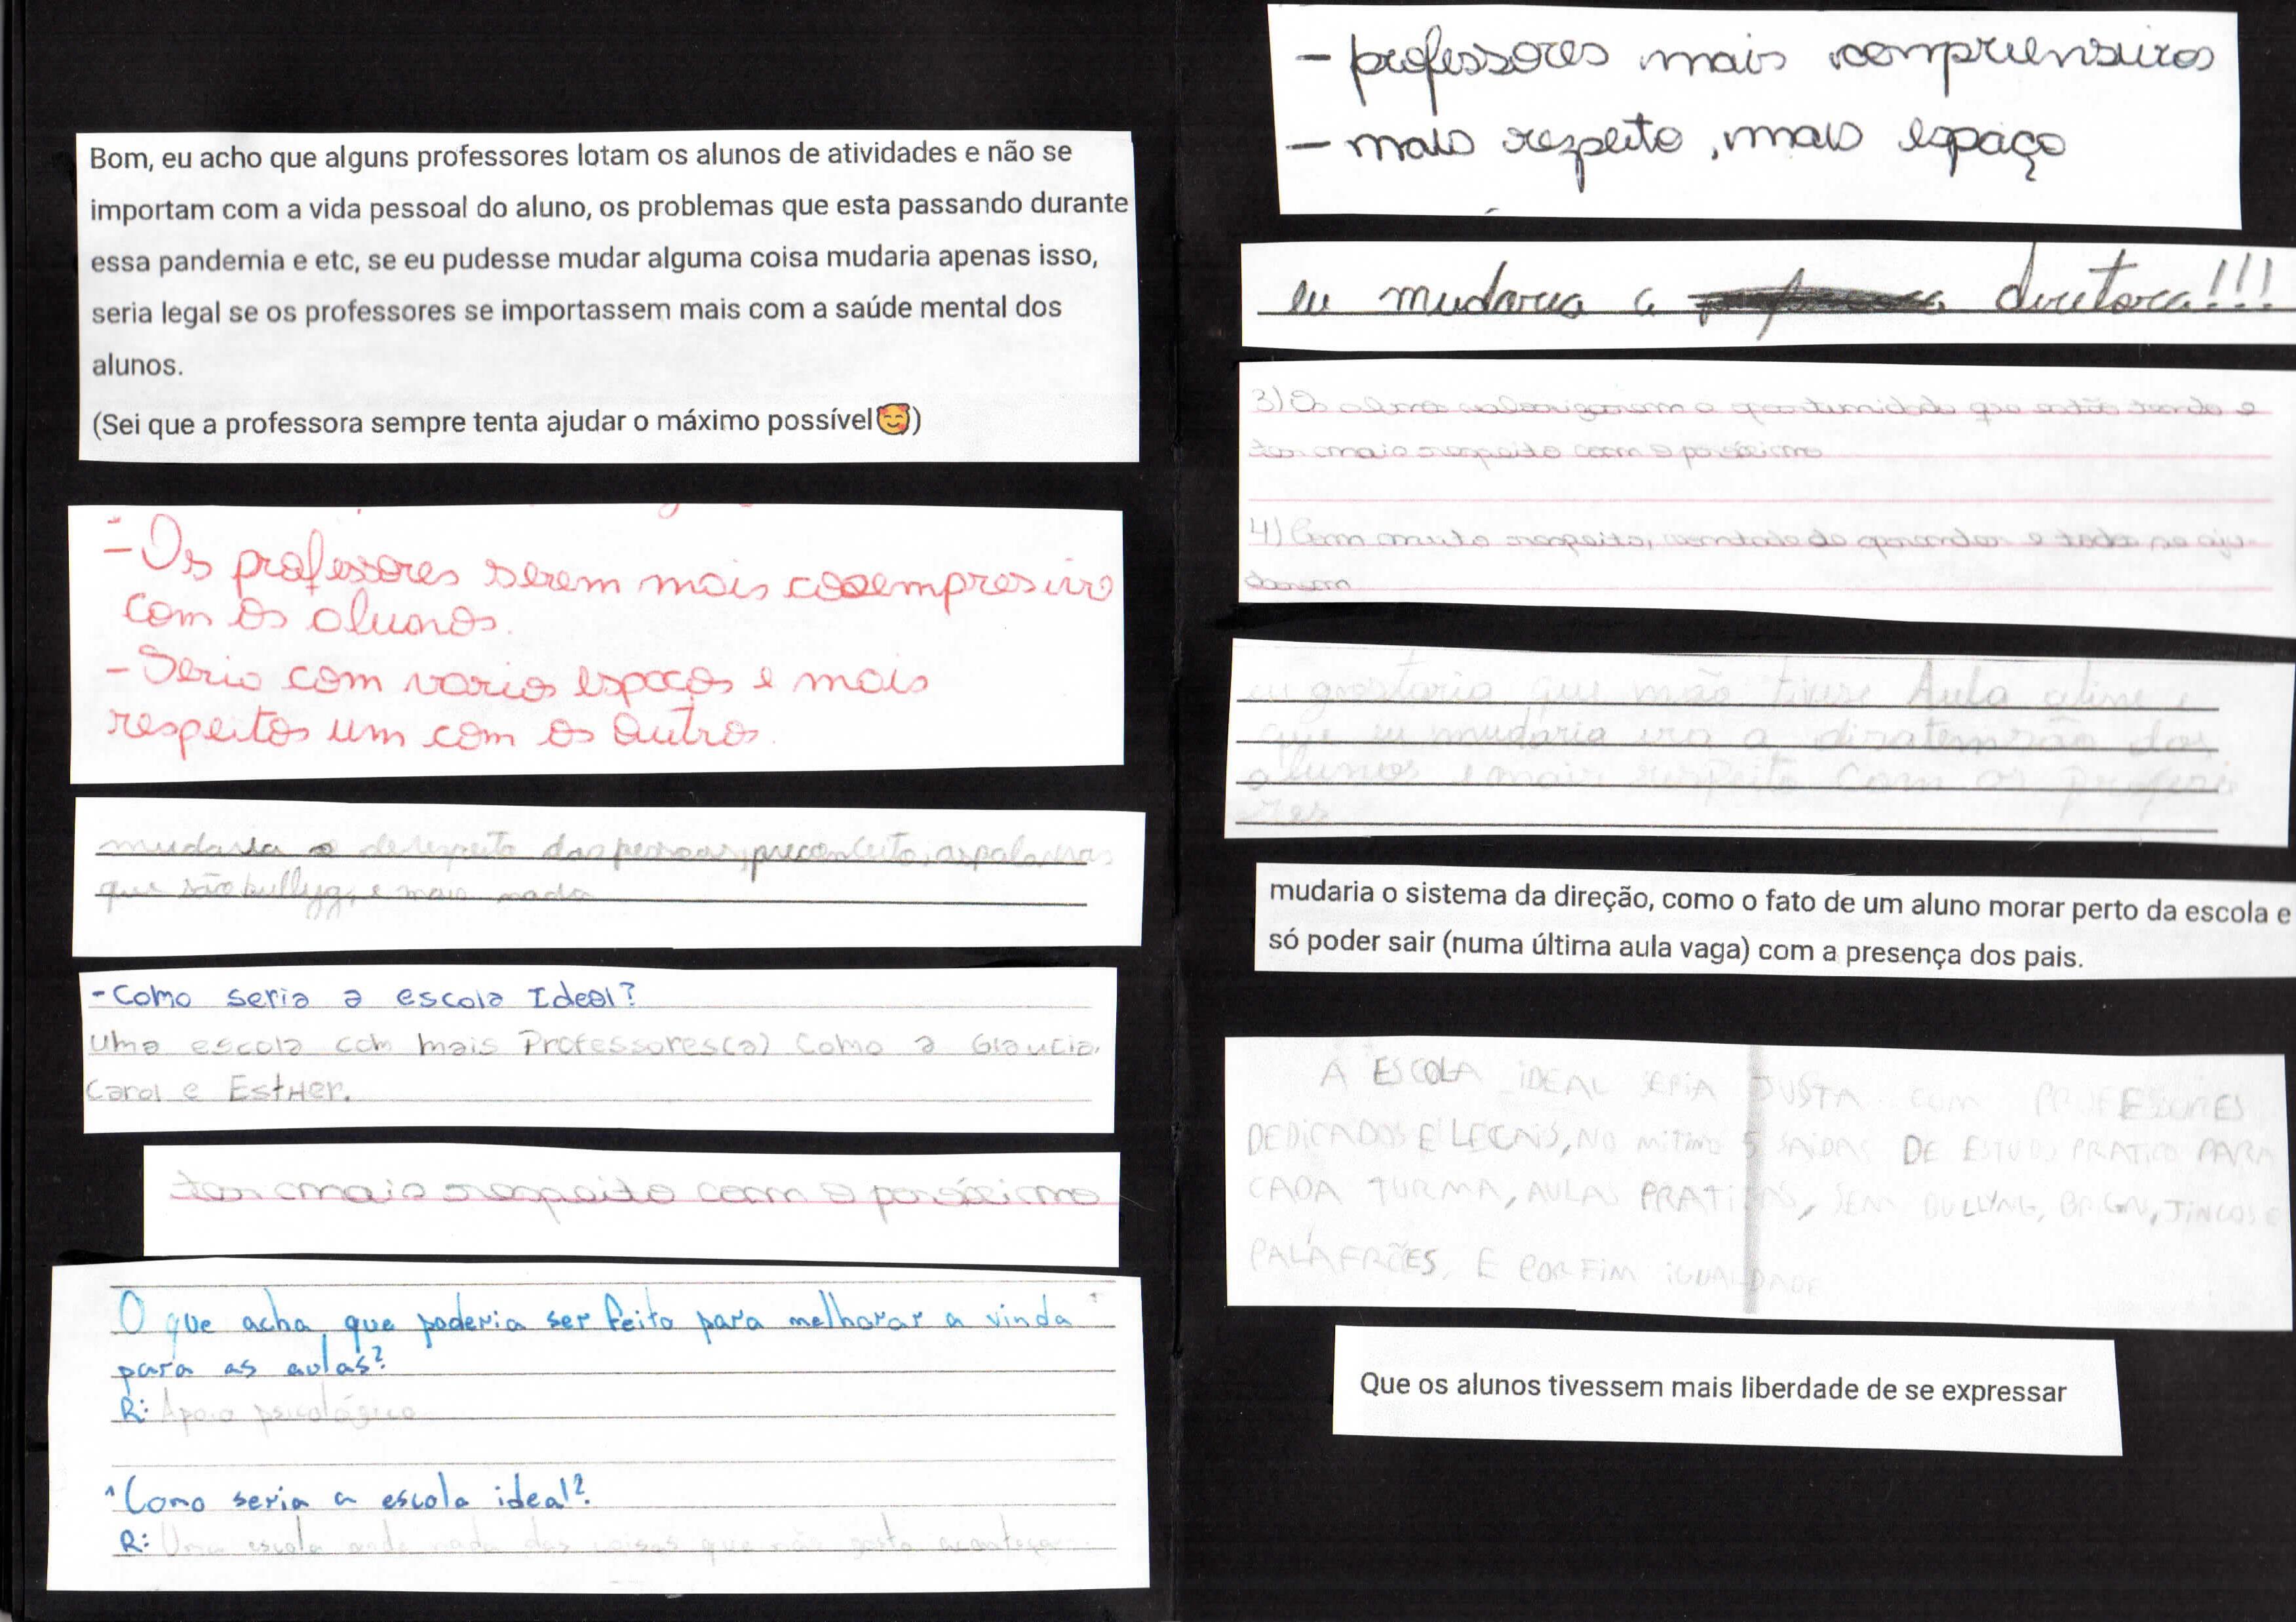 Bom, eu acho que alguns professores lotam os alunos de atividades e não se
importam com a vida pessoal do aluno, os problemas que esta passando durante
essa pandemia e etc, se eu pudesse mudar alguma coisa mudaria apenas isso,
seria legal se os professores se importassem mais com a saúde mental dos
alunos.
(Sei que a professora sempre tenta ajudar o máximo possível🥰)
- Os professores serem mais cooempresivo
com os alunos.
- Seria com varios espaços e mais
respeitos um com os outros.
mudaria o desrespeito das pessoas, preconceito, as palavras
que são bullyg, e mais nada
- Como seria a escola Ideal?
Uma escola com mais Professores(a) como a Glaucia,
Carol e EstHer.
ter mais respeito com o porósicmo
O que acha que poderia ser feito para melhorar a vinda
para as aulas?
R: Apoio psicológico
Como seria a escola ideal?
R: Uma escola onde nada das coisas que não gosto aconteça
- professores mais compriensivos
- mais respeito, mais espaço
eu mudaria a diretora!!!
3) Os alunos valorizarem a oportunidade que estão tendo e
ter mais respeito com o porósicmo
4) Com muito respeito, vontade de aprender e todos se aju-
darem
eu gostaria que não tivese Aula
que eu mudaria era a dos
alunos e mais respeito com os profeso
res
mudaria o sistema da direção, como o fato de um aluno morar perto da escola e
só poder sair (numa última aula vaga) com a presença dos pais.
A ESCOLA IDEAL SERIA JUSTA COM PROFESSORES
DEDICADOS E LEGAIS, NO MITIMO 5 SAIDAS DE ESTUDO PRATICO PARA
CADA TURMA, AULAS PRATICAS, SEM BULLYNG,
PALAFRÕES, E POR FIM IGUALDADE
Que os alunos tivessem mais liberdade de se expressar